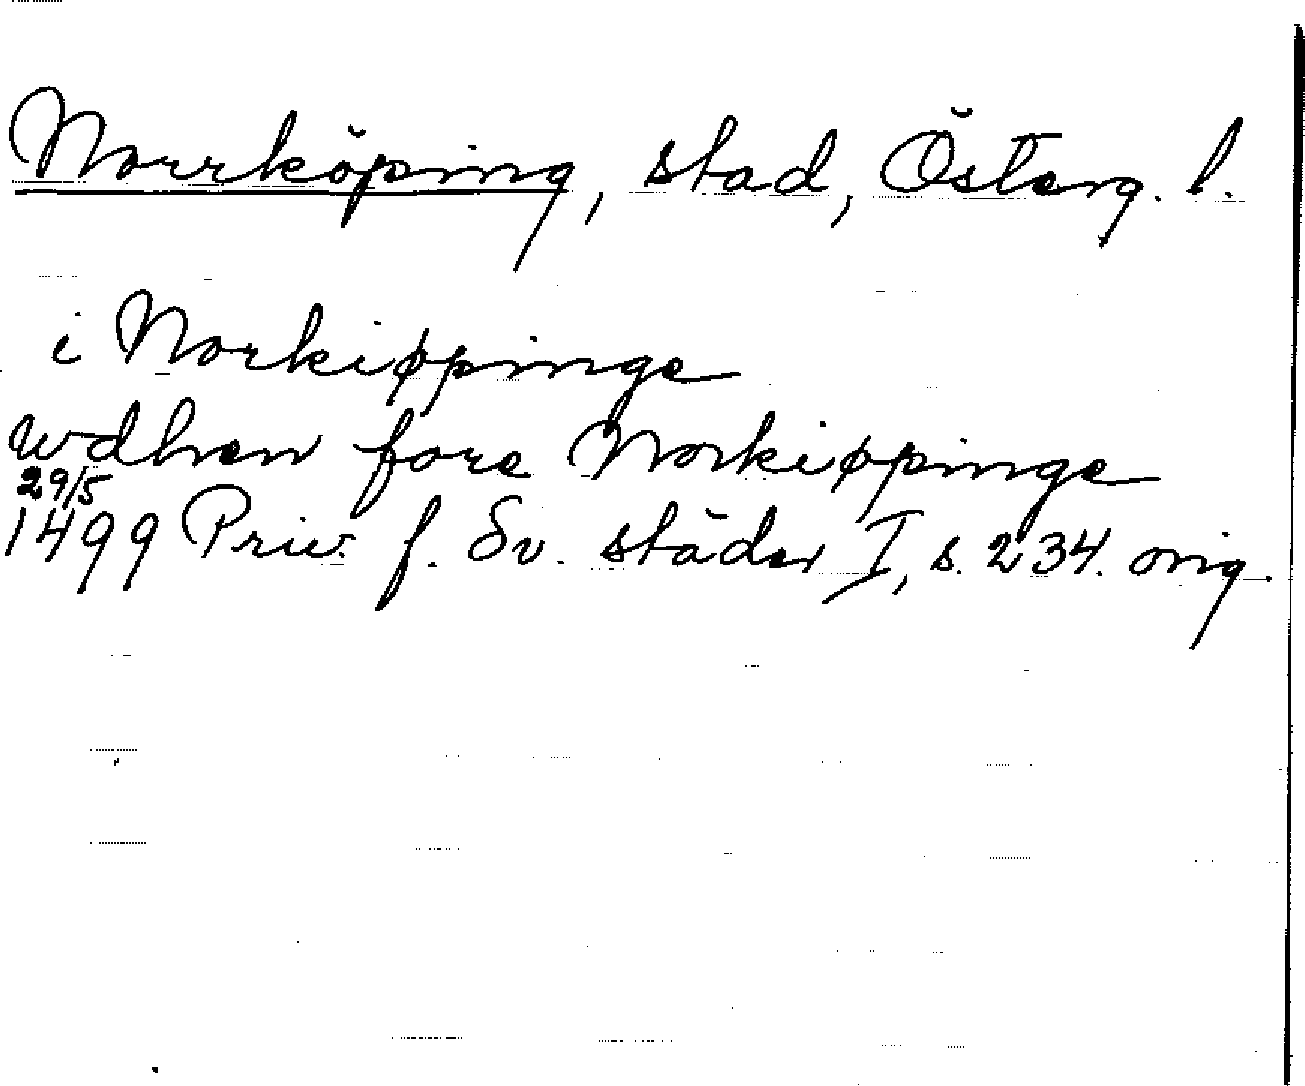 Norrköping, stad, Österg. l.
i Norkiøppinge
wdhen fore Norkiøppinge
29/5
1499 Priv. f. Sv. städer I, s. 234. orig.